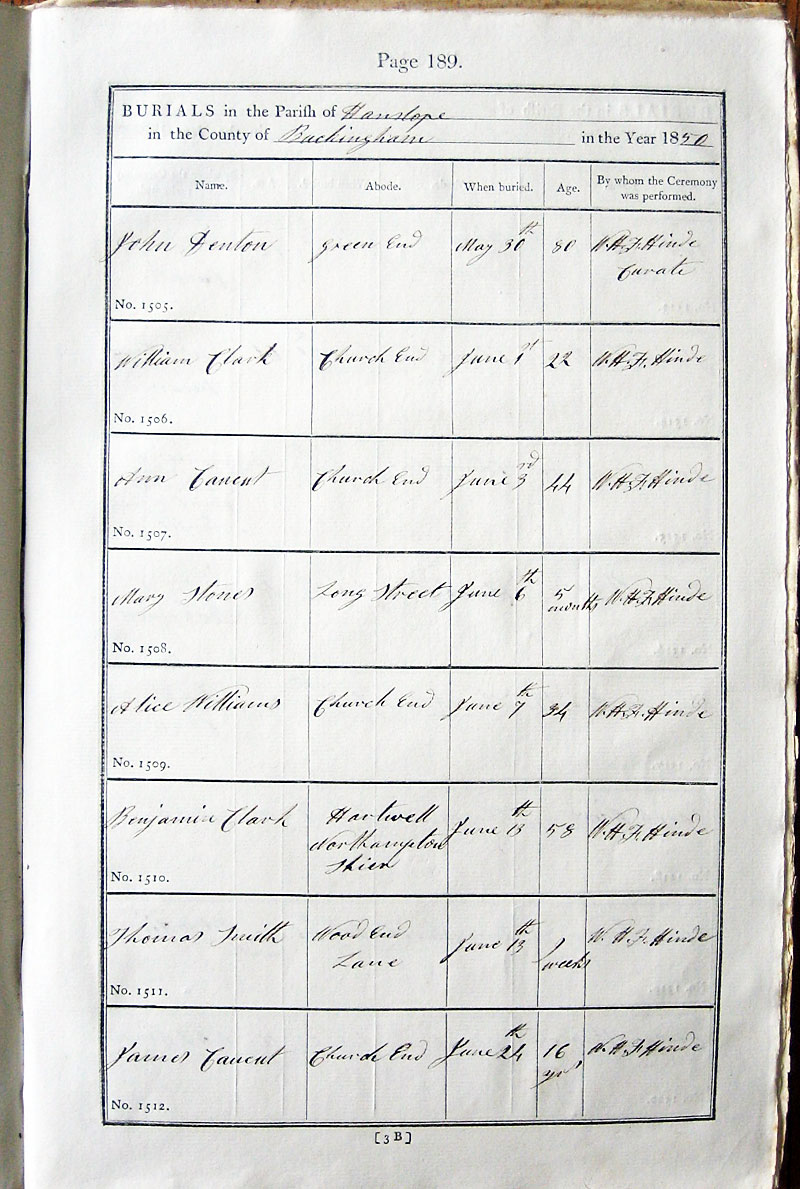 Page 189.
BURIALS in the Parish of Hanslope
in the County of Buckingham in the Year 1850
Name. Abode. When buried. Age. By whom the Ceremony was performed.
John Denton Green End May 30th 80 W.H.F. Hinde
Curate
No. 1505.
William Clark Church End June 1st 22 W.H.F. Hinde
No. 1506.
Ann Cauent Church End June 3rd 44 W.H.F. Hinde
No. 1507.
Mary Stones Long Street June 6th 5 months W.H.F. Hinde
No. 1508.
Alice Williams Church End June 7th 34 W.H.F. Hinde
No. 1509.
Benjamin Clark Hartwell June 13th 58 W.H.F. Hinde
Northampton
Shier
No. 1510.
Thomas Smith Wood End June 13th weeks W.H.F. Hinde
Lane
No. 1511.
James Cauent Church End June 24th 16 W.H.F. Hinde
yrs
No. 1512.
[3B]